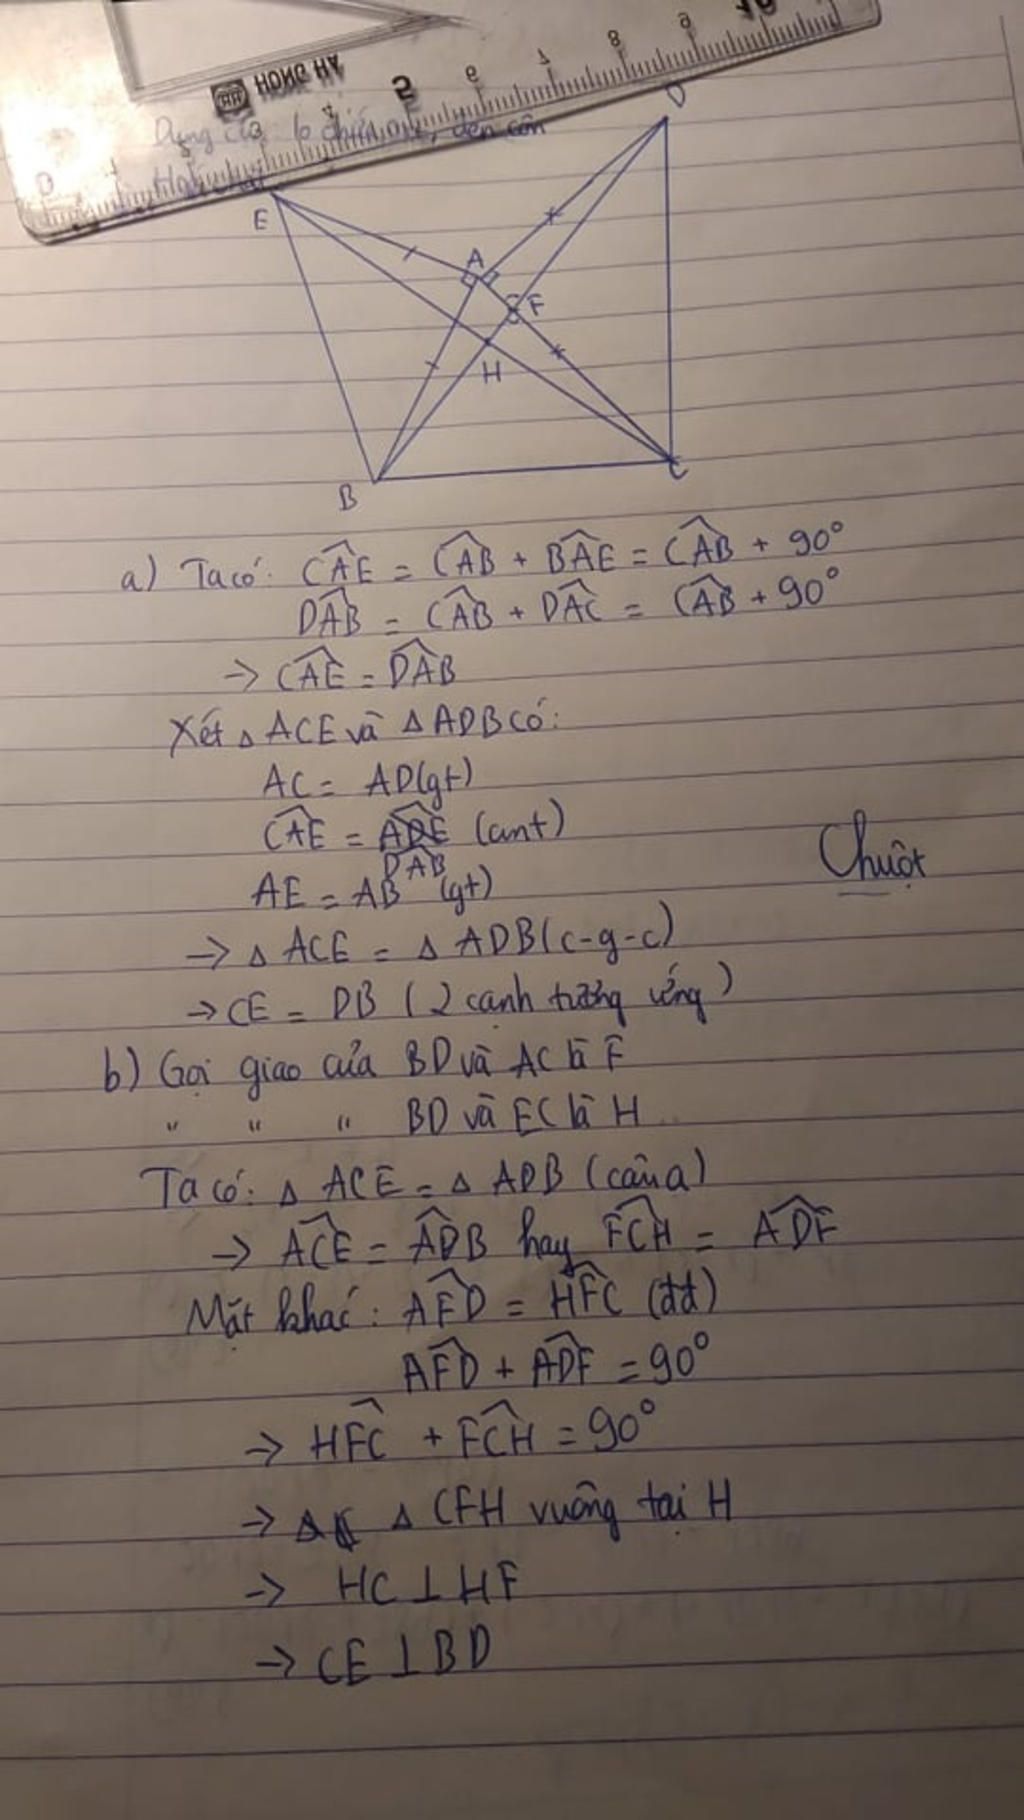 HONG HA
0
5
10
Dụng cụ: lò chiên
E
A
D
F
H
B
C
a) Ta có: CÂE = CÂB + BÂE = CÂB + 90°
DÂB = CÂB + DÂC = CÂB + 90°
→ CÂE = DÂB
Xét △ ACE và △ ADB có:
AC = AD (gt)
CÂE = DÂB (cmt)
AE = AB (gt)
Chuột
→ △ ACE = △ ADB (c-g-c)
→ CE = DB (2 cạnh tương ứng)
b) Gọi giao của BD và AC là F
" " " BD và EC là H
Ta có: △ ACE = △ ADB (câu a)
→ AĈE = AD̂B hay FĈH = AD̂F
Mặt khác: AF̂D = HF̂C (đđ)
AF̂D + AD̂F = 90°
→ HF̂C + FĈH = 90°
→ △ CFH vuông tại H
→ HC ⊥ HF
→ CE ⊥ BD